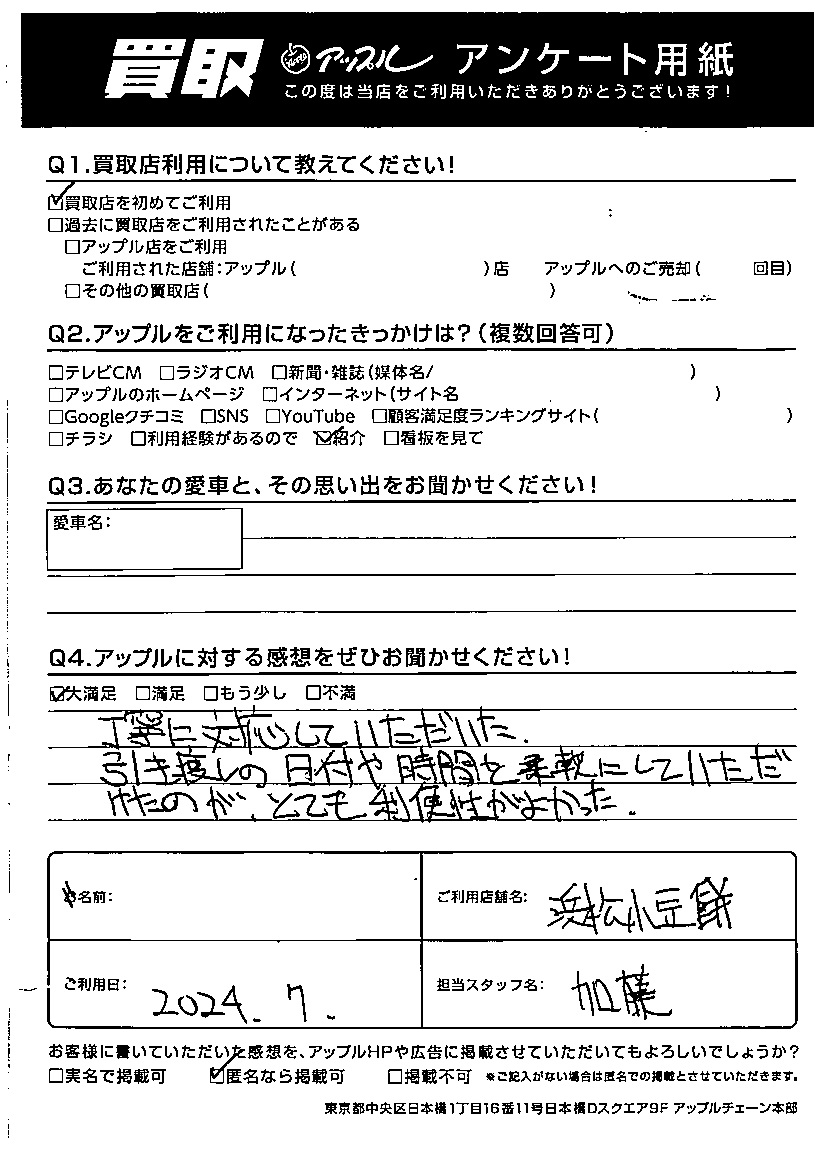 買取 Apple アップル アンケート用紙
この度は当店をご利用いただきありがとうございます!
Q1.買取店利用について教えてください!
☑買取店を初めてご利用
□過去に買取店をご利用されたことがある
□アップル店をご利用
ご利用された店舗:アップル( )店 アップルへのご売却( 回目)
□その他の買取店( )
Q2.アップルをご利用になったきっかけは?(複数回答可)
□テレビCM □ラジオCM □新聞・雑誌(媒体名/ )
□アップルのホームページ □インターネット(サイト名 )
□Googleクチコミ □SNS □YouTube □顧客満足度ランキングサイト( )
□チラシ □利用経験があるので ☑紹介 □看板を見て
Q3.あなたの愛車と、その思い出をお聞かせください!
愛車名:
Q4.アップルに対する感想をぜひお聞かせください!
☑大満足 □満足 □もう少し □不満
丁寧に対応していただいた.
引き渡しの日付や時間を柔軟にしていただ
けたのが、とても利便性がよかった.
お名前: ご利用店舗名: 浜松小豆餅
ご利用日: 2024.7. 担当スタッフ名: 加藤
お客様に書いていただいた感想を、アップルHPや広告に掲載させていただいてもよろしいでしょうか?
□実名で掲載可 ☑匿名なら掲載可 □掲載不可 ※ご記入がない場合は匿名での掲載とさせていただきます。
東京都中央区日本橋1丁目16番11号日本橋Dスクエア9F アップルチェーン本部